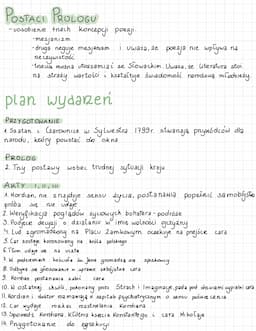 POSTACI PROLOGU
- uosobienie trzech koncepcji poezji.
- mesjanizm
- druga neguje mesjanizm i uważa, że poezja nie wpływa na rzeczywistość
- trzecia można utożsamiać ze Słowackim. Uważa, że literatura stoi na straży wartości i kształtuje świadomość narodową młodzieży
plan wydarzeń
PRZYGOTOWANIE
1. Szatan i Czarownica w Sylwestra 1799r. stwarzają przywódców dla narodu, który powstać do
PROLOG
2. Trzy postawy wobec trudnej sytuacji kraju
AKTY I, II, III
1. Kordian, nie znajduje sensu życia, postanawia popełnić samobójstwo
próba się nie udaje
2. Weryfikacja poglądów życiowych bohatera - podróże
3. Podjęcie decyzji o działaniu w imię wolności ojczyzny
4. Lud zgromadzony na Placu Zamkowym oczekuje na przejście cara
5. Car zostaje koronowany na króla polskiego
6. Tłum udaje się na uczte
7. W podziemiach kościoła św. Jana gromadzą się spiskowcy
8. Odbywa się głosowanie w sprawie zabójstwa cara
9. Kordian postanawia zabić cara
10. W ostatniej chwili, pokonany przez Strach i Imaginację, pada pod drzwiami sypialni cara
11. Kordian i doktor rozmawiają w szpitalu psychiatrycznym o sensie poświęcenia
12. Car wydaje rozkaz rozstrzelania Kordiana
13. Spowiedź Kordiana. Kłótnia księcia Konstantego i cara Mikołaja
14. Przygotowanie do egzekucji